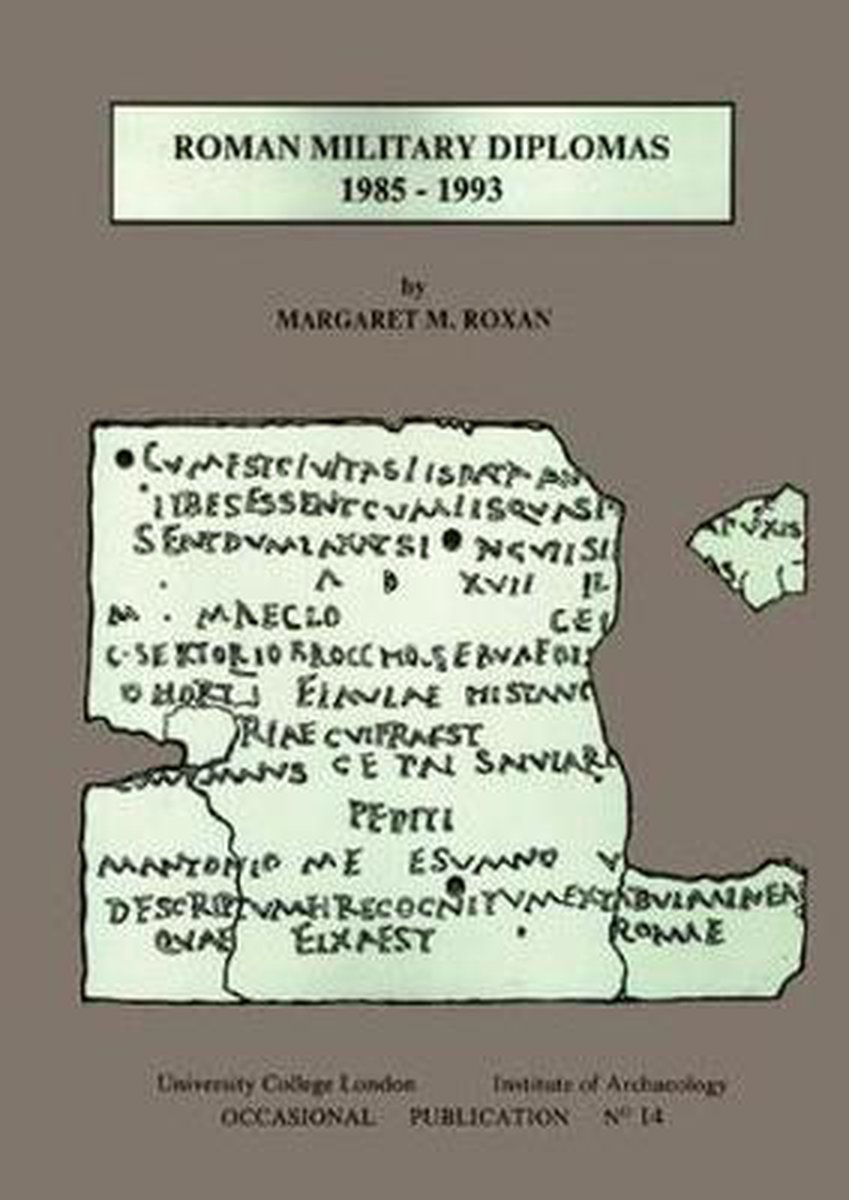 ROMAN MILITARY DIPLOMAS
1985 - 1993
by
MARGARET M. ROXAN
CVMESTCIVITASIISDATA
ITBESESSENTCVMIISQVASI
SENTDVMTAXATSI NGVIISI
A D XVII
M. MAECLO CE
C·SERTORIO
COHORT
RIAE CVIPRAEST
PEDITI
MANTONIO ME ESVMNO V
DESCRIPTVMETRECOGNITVMEXTABVLAAENEA
QVAE FIXAEST ROMAE
University College London Institute of Archaeology
OCCASIONAL PUBLICATION Nº 14